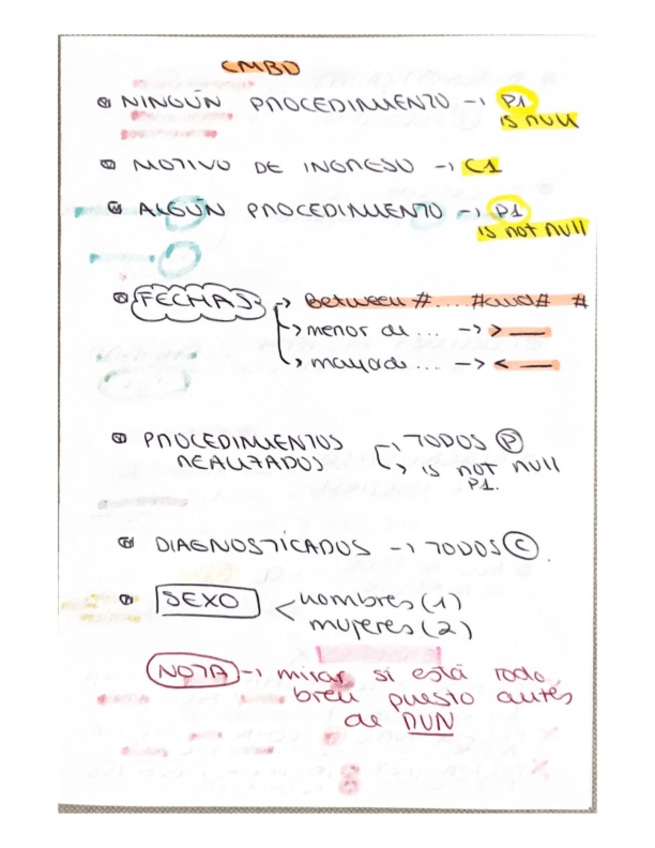 CMBD
NINGÚN PROCEDIMIENTO → P1
is null
MOTIVO DE INGRESO → C1
ALGÚN PROCEDIMIENTO → P1
is not null
FECHAS → Between #....#and# #
→ menor de ... → > —
→ mayor de ... → < —
PROCEDIMIENTOS → TODOS P
REALIZADOS → is not null
P1.
DIAGNOSTICADOS → TODOS C.
SEXO < hombres (1)
mujeres (2)
NOTA → mirar si está todo
bien puesto antes
de RUN